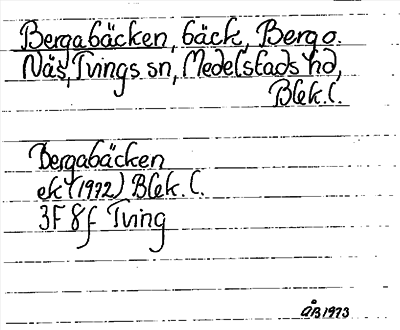 Bergabäcken, bäck, Berg o.
Näs, Tvings sn, Medelstads hd,
Blek. l.
Bergabäcken
ek (1972) Blek. l.
3F 8f Tving
ÅB 1973